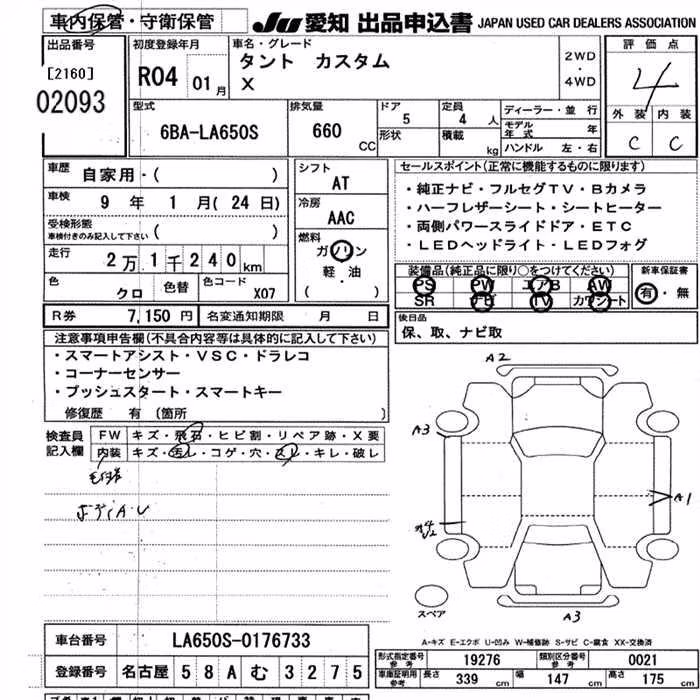 車内保管・守衛保管 JU 愛知 出品申込書 JAPAN USED CAR DEALERS ASSOCIATION
出品番号 [2160] 02093
初度登録年月 R04 01月
車名・グレード タント カスタム X
2WD ・ 4WD
評価点 4
外装 内装
C C
型式 6BA-LA650S
排気量 660 CC
ドア 5
形状
定員 4 人
積載 kg
ディーラー・並行
モデル年式 年
ハンドル 左・右
車歴 自家用・( )
車検 9年 1月(24日)
受検形態 車検付きのみ記入して下さい ( )
走行 2万1千240km
色 クロ 色替 色コード X07
シフト AT
冷房 AAC
燃料 ガソリン
軽・油
( )
セールスポイント(正常に機能するものに限ります)
・純正ナビ・フルセグTV・Bカメラ
・ハーフレザーシート・シートヒーター
・両側パワースライドドア・ETC
・LEDヘッドライト・LEDフォグ
装備品(純正品に限り○をつけてください)
PS PW エアB AW
SR ナビ TV カワシート
新車保証書 有・無
R券 7,150円 名変通知期限 月 日
後日品
保、取、ナビ取
注意事項申告欄(不具合内容等は具体的に記入して下さい)
・スマートアシスト・VSC・ドラレコ
・コーナーセンサー
・プッシュスタート・スマートキー
修復歴 有 (箇所 )
検査員記入欄
FW キズ・飛石・ヒビ割・リペア跡・X要
内装 キズ・汚レ・コゲ・穴・スレ・キレ・破レ
ボディA・U
A2
A3
A1
A3
スペア
A-キズ E-エクボ U-凹み W-補修跡 S-サビ C-腐食 XX-交換済
車台番号 LA650S-0176733
登録番号 名古屋 58Aむ3275
型式指定番号 参考 19276 類別区分番号 参考 0021
車庫証明用 参考 長さ 339 cm 幅 147 cm 高さ 175 cm